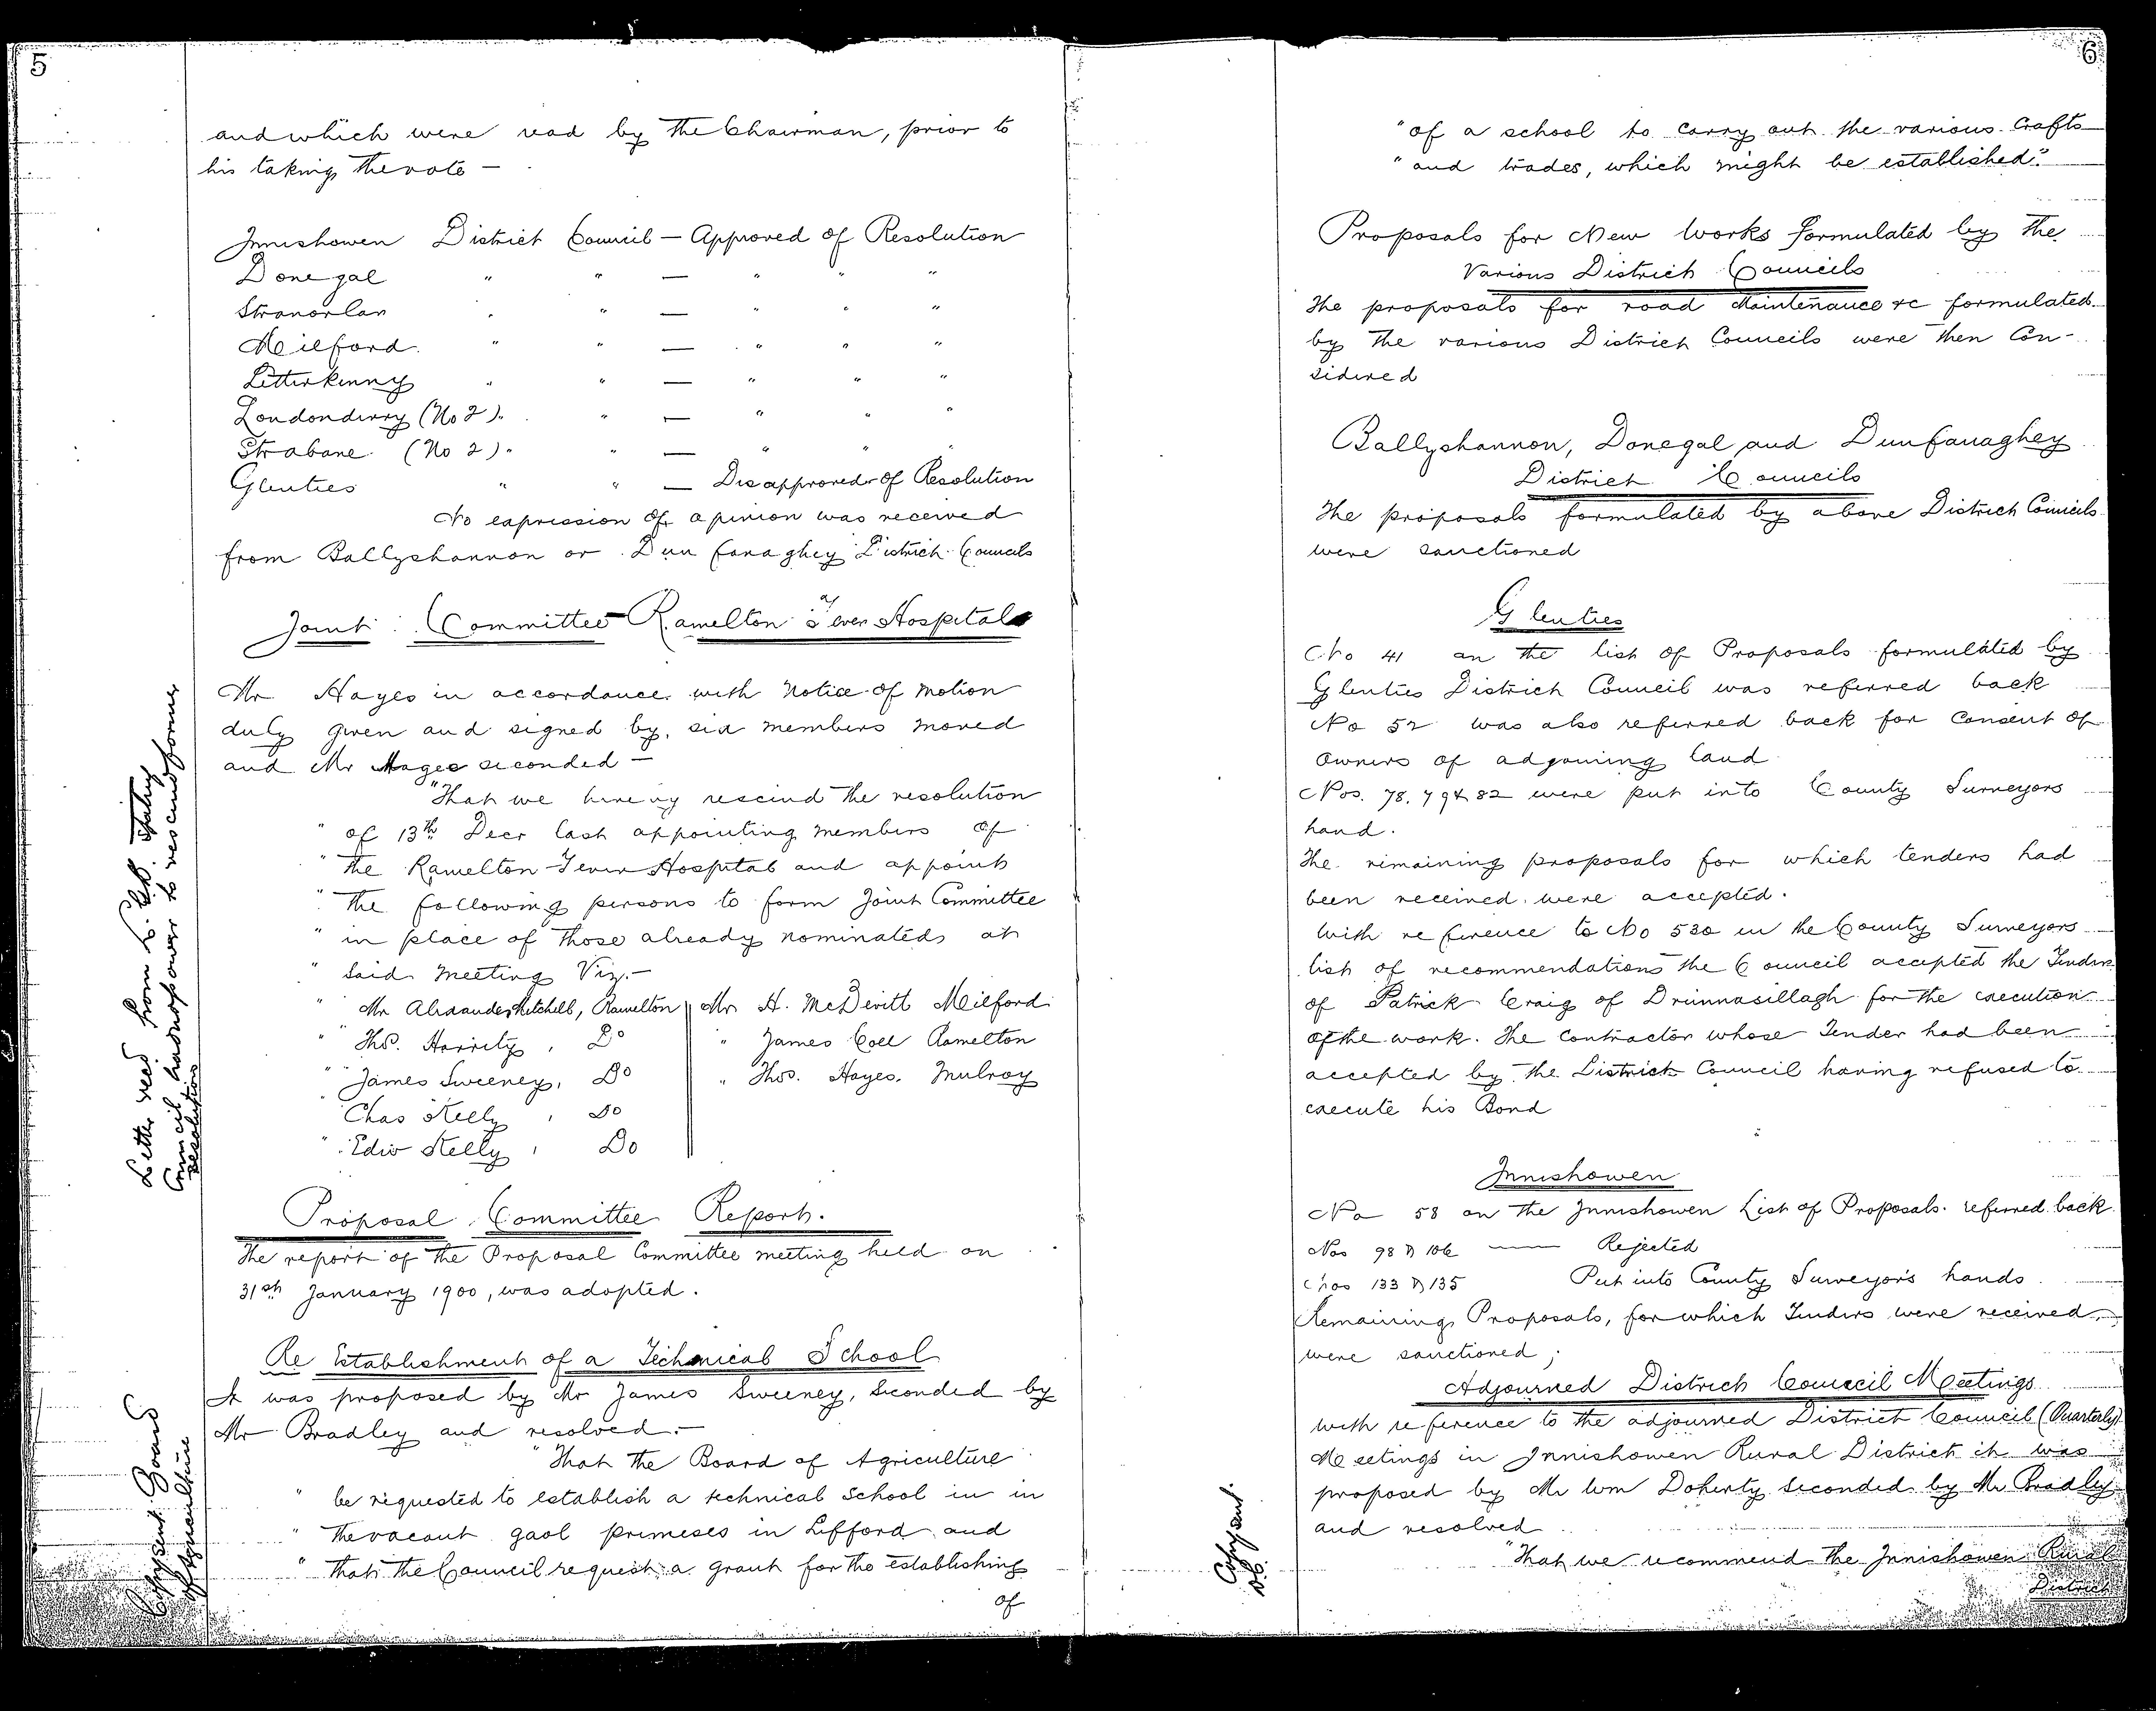 5
and which were read by the Chairman, prior to
his taking the vote —
Innishowen District Council — Approved of Resolution
Donegal " " — " " "
Stranorlar " " — " " "
Milford " " — " " "
Letterkenny " " — " " "
Londonderry (No 2) " " — " " "
Strabane (No 2) " " — " " "
Glenties " " — Disapproved of Resolution
No expression of opinion was received
from Ballyshannon or Dunfanaghey District Councils
Joint Committee Ramelton Fever Hospital
Mr Hayes in accordance with Notice of Motion
duly given and signed by six members moved
and Mr Magee seconded —
"That we hereby rescind the resolution
" of 13th Decr last appointing members of
" the Ramelton Fever Hospital and appoint
" the following persons to form Joint Committee
" in place of those already nominated at
" said meeting Viz.—
" Mr Alexander Mitchell, Ramelton Mr H. McDevitt Milford
" " Ths. Harrity, Do " James Coll Ramelton
" " James Sweeney, Do " Thos. Hayes, Mulroy
" Chas Kelly, Do
" Edw Kelly, Do
Letter recd from
Council had no power to rescind former
resolution
Proposal Committee Report.
The report of the Proposal Committee meeting held on
31st January 1900, was adopted.
Re Establishment of a Technical School
It was proposed by Mr James Sweeney, Seconded by
Mr Bradley and resolved.—
"That the Board of Agriculture
" be requested to establish a technical School in in
" the vacant gaol premeses in Lifford and
" that the Council request a grant for the establishing
of
Copy sent Board
of Agriculture
6
" of a school to carry out the various Crafts
" and trades, which might be established."
Proposals for New Works formulated by the
Various District Councils
The proposals for road Maintenance &c formulated
by the various District Councils were then Con-
sidered
Ballyshannon, Donegal and Dunfanaghey
District Councils
The proposals formulated by above District Councils
were sanctioned
Glenties
No 41 on the list of Proposals formulated by
Glenties District Council was referred back
No 52 was also referred back for Consent of
Owners of adjoining land
Nos. 78, 79 & 82 were put into County Surveyors
hand.
The remaining proposals for which tenders had
been received were accepted.
With reference to No 530 in the County Surveyors
list of recommendations the Council accepted the Tender
of Patrick Craig of Drimnasillagh for the execution
of the work. The Contractor whose Tender had been
accepted by the District Council having refused to
execute his Bond
Innishowen
No 58 on the Innishowen List of Proposals. referred back
Nos 98 & 106 — Rejected
Nos 133 & 135 Put into County Surveyor's hands
Remaining Proposals, for which Tenders were received,
were sanctioned;
Adjourned District Council Meetings
With reference to the adjourned District Council (Quarterly)
Meetings in Innishowen Rural District it was
proposed by Mr Wm Doherty Seconded by Mr Bradley
and resolved
"That we recommend the Innishowen Rural
District
Copy sent.